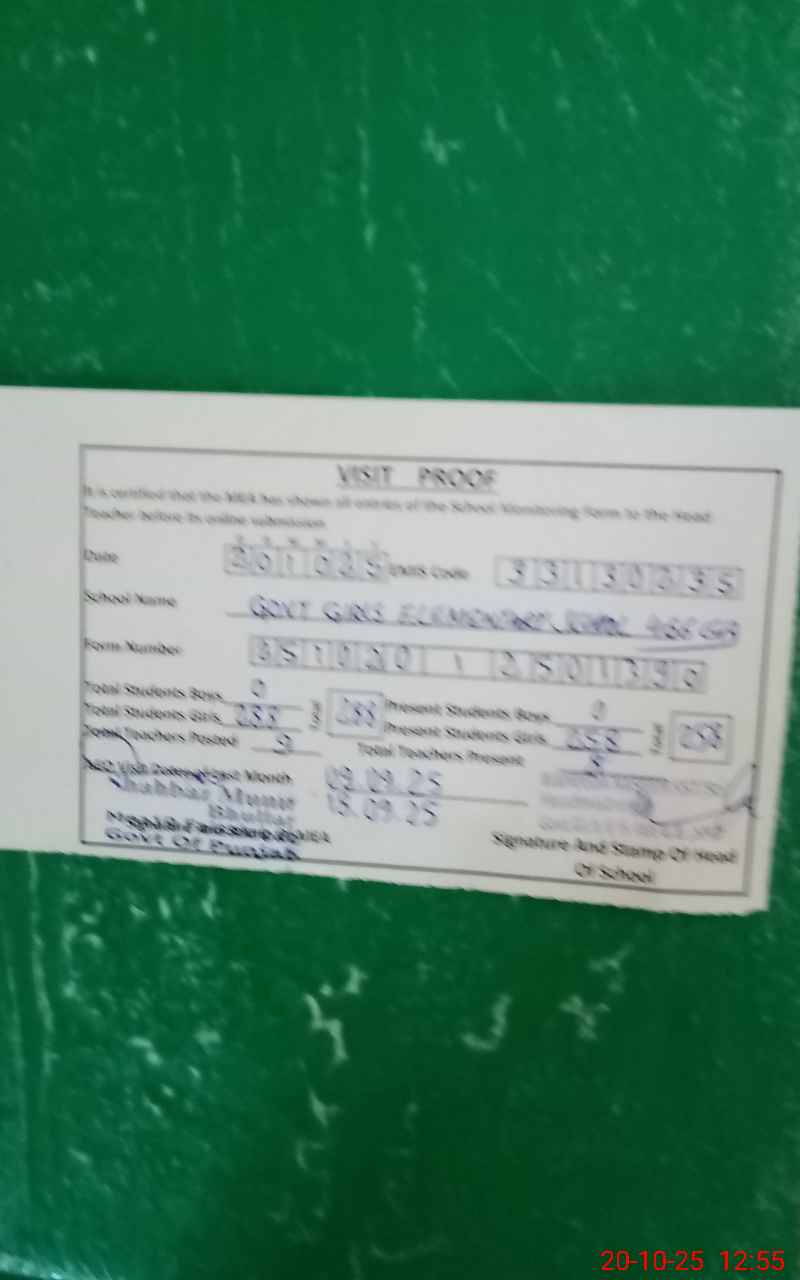 VISIT PROOF
It is certified that the MEA has shown all entries of the School Monitoring Form to the Head
Teacher before its online submission
Date 201025 EMIS Code 33130235
School Name GOVT GIRLS ELEMENTARY SCHOOL 466 GB
Form Number
Total Students Boys 0 Present Students Boys 0
Total Students Girls 288 288 Present Students Girls 258 258
Total Teachers Posted 9 Total Teachers Present 8
Last Month 09.09.25
15.09.25
Munir
Bhullar
Govt Of Punjab
Signature And Stamp Of Head
Of School
20-10-25 12:55